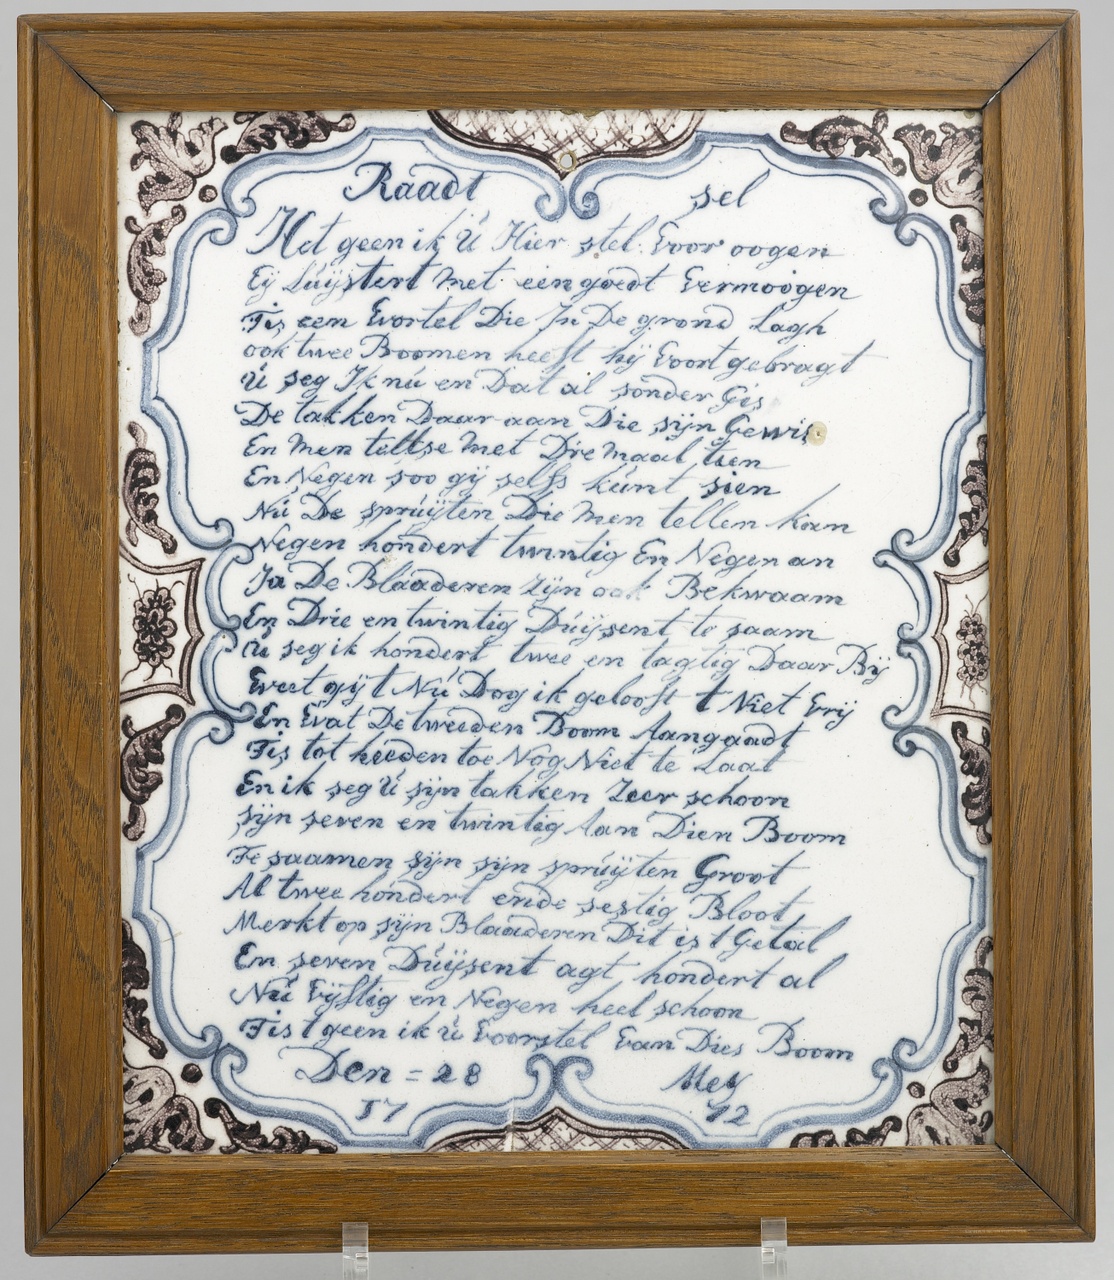 Raadt sel
Het geen ik Ú Hier stel Voor oogen
Eÿ Luÿstert Met een goedt Vermoogen
Tis een Wortel Die In De grond Lagh
ook twee Boomen heeft hÿ Voort gebragt
Ú seg Ik nú en Dat al sonder Gis
De takken Daar aan Die sÿn Gewis
En Men teltse Met Drie maal tien
En Negen soo gÿ selfs kúnt sien
Nú De sprúÿten Die Men tellen kan
Negen hondert twintig En Negen an
Ja De Blaaderen Zÿn ook Bekwaam
En Drie en twintig Dúÿsent te saam
Ú seg ik hondert twee en tagtig Daar Bÿ
Weet gÿ t Nú Dog ik gelooft t Niet Vrÿ
En Wat De tweeden Boom Aangaadt
Tis tot heeden toe Nog Niet te Laat
En ik seg Ú sÿn takken Zeer schoon
sÿn seven en twintig Aan Dien Boom
Te saamen sÿn sÿn sprúÿten Groot
Al twee hondert ende sestig Bloot
Merkt op sÿn Blaaderen Dit is t Getal
En seven Dúÿsent agt hondert al
Nú Vÿftig en Negen heel schoon
Tis t geen ik ú Voorstel Van Dies Boom
Den = 28 Meÿ
17 72